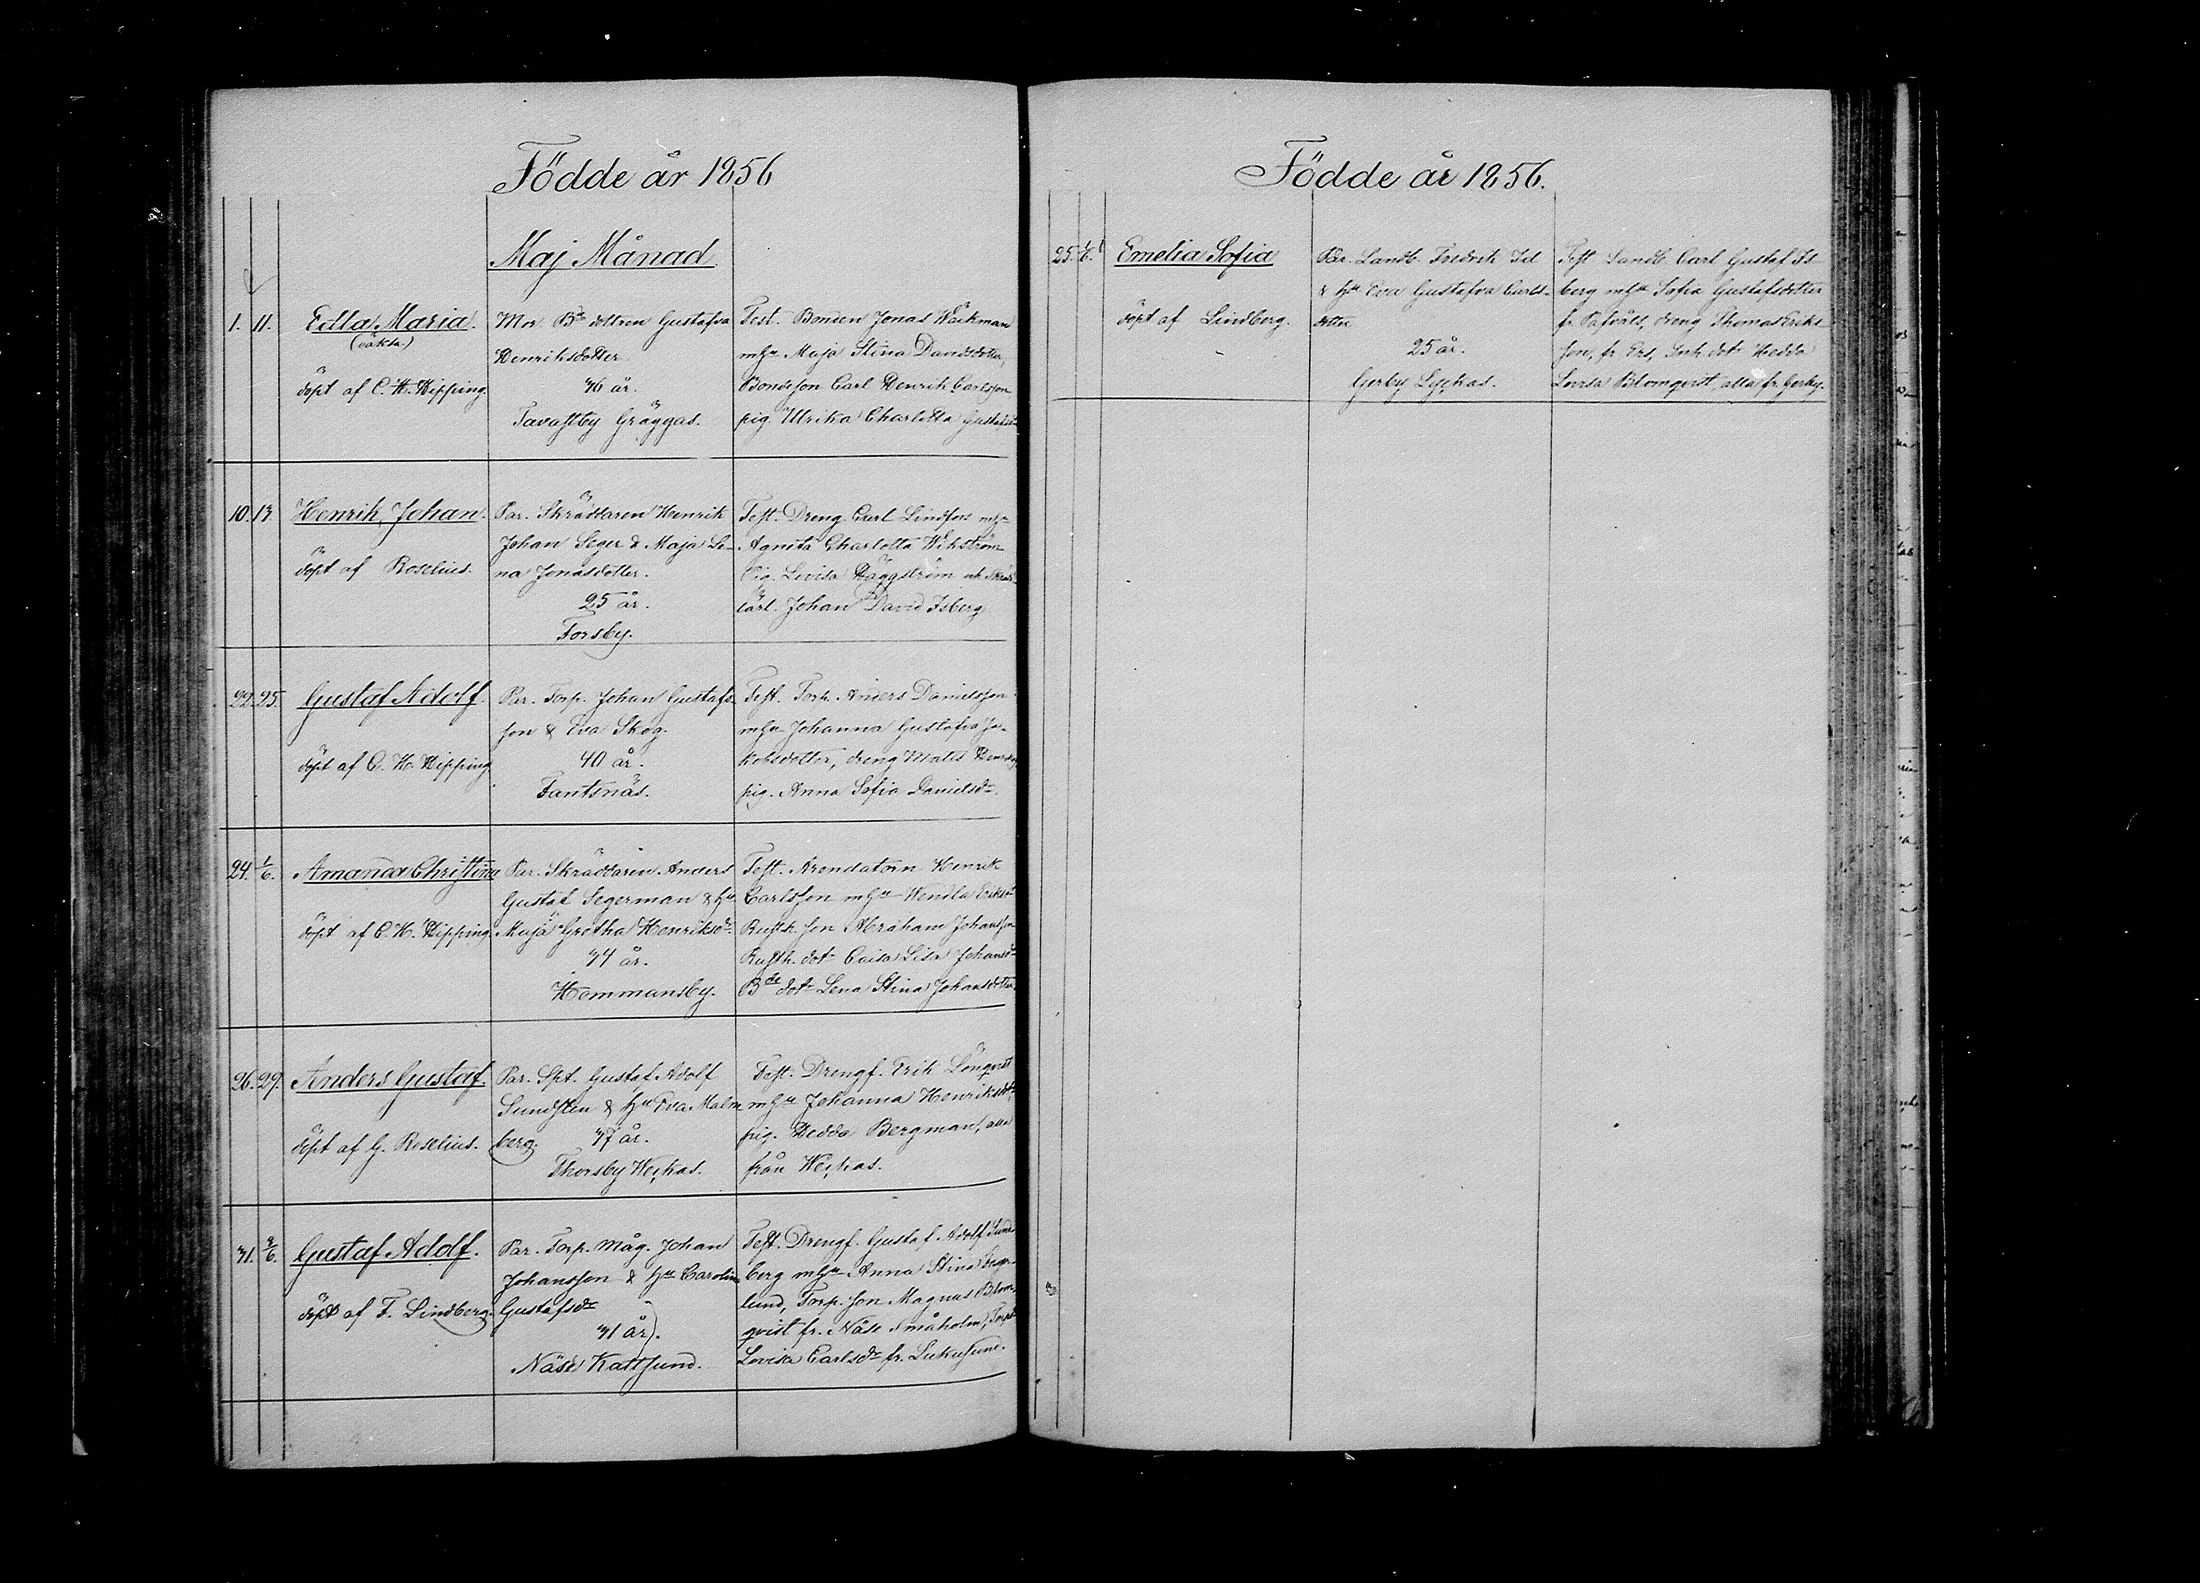 Födde år 1856
Maj Månad
1. 11. Edla Maria.
(oäkta)
döpt af C. H. Hipping.
Mor. Bde dottren Gustafva
Henriksdotter
36 år.
Tavastby Gräggas.
Test. Bonden Jonas Wäckman
mhu Maja Stina Davidsdotter,
Bondeson Carl Henrik Carlsson
pig. Ulrika Charlotta Gustafsdr
10. 13. Henrik Johan.
döpt af Roselius.
Par. Skräddaren Henrik
Johan Seger & Maja Le-
na Jonasdotter.
25 år.
Forsby.
Test. Dreng Carl Lindfors mhu
Agneta Charlotta Wikström
Pig. Lovisa Häggström och Skräd.
lärl. Johan David Isberg
22. 25. Gustaf Adolf.
döpt af C. H. Hipping
Par. Torp. Johan Gustafs-
son & Eva Skog.
40 år.
Fantsnäs.
Test. Torp. Anders Danielsson
mhu Johanna Gustafva Ja-
kobsdotter, dreng Matts
pig. Anna Sofia Danielsdr.
24. 1/6. Amanda Christina
döpt af C. H. Hipping.
Par. Skräddaren Anders
Gustaf Segerman & hu
Maja Gretha Henriksdr
34 år.
Hommansby.
Test. Arendatorn Henrik
Carlsson mhu Wendla Eriksdr
Rusth. son Abraham Johansson
Rusth. dotr Caisa Lisa Johansdr
Bde dotr Lena Stina Johansdotter
26. 29. Anders Gustaf.
döpt af G. Roselius.
Par. Spt. Gustaf Adolf
Sundsten & hu Eva Malm
berg. 37 år.
Thorsby Weckas.
Test. Drengf. Erik Lönqvist
mhu Johanna Henriksdotr,
pig. Hedda Bergman, alla
från Weckas.
31. 3/6. Gustaf Adolf.
döpt af F. Lindberg.
Par. Torp. måg. Johan
Johansson & hu Carolina
Gustafsdr
31 år.
Näse Kattsund.
Test. Drengf. Gustaf Adolf Sund-
berg mhu Anna Stina
lund, Torp. son Magnus Blom-
qvist fr. Näse Småholm,
Lovisa Carlsdr fr.
Födde år 1856.
25. 1/6. Emelia Sofia
döpt af Lindberg.
Par. Landb. Fredrik
& hu Eva Gustafva Carls-
dotter
25 år.
Gerby Lyckas.
Test. Landb. Carl Gustaf Is-
berg mhu Sofia Gustafsdotter
fr. dreng Thomas Eriks
son, fr. dotr Hedda
Lovisa Blomqvist, alla fr. Gerby.